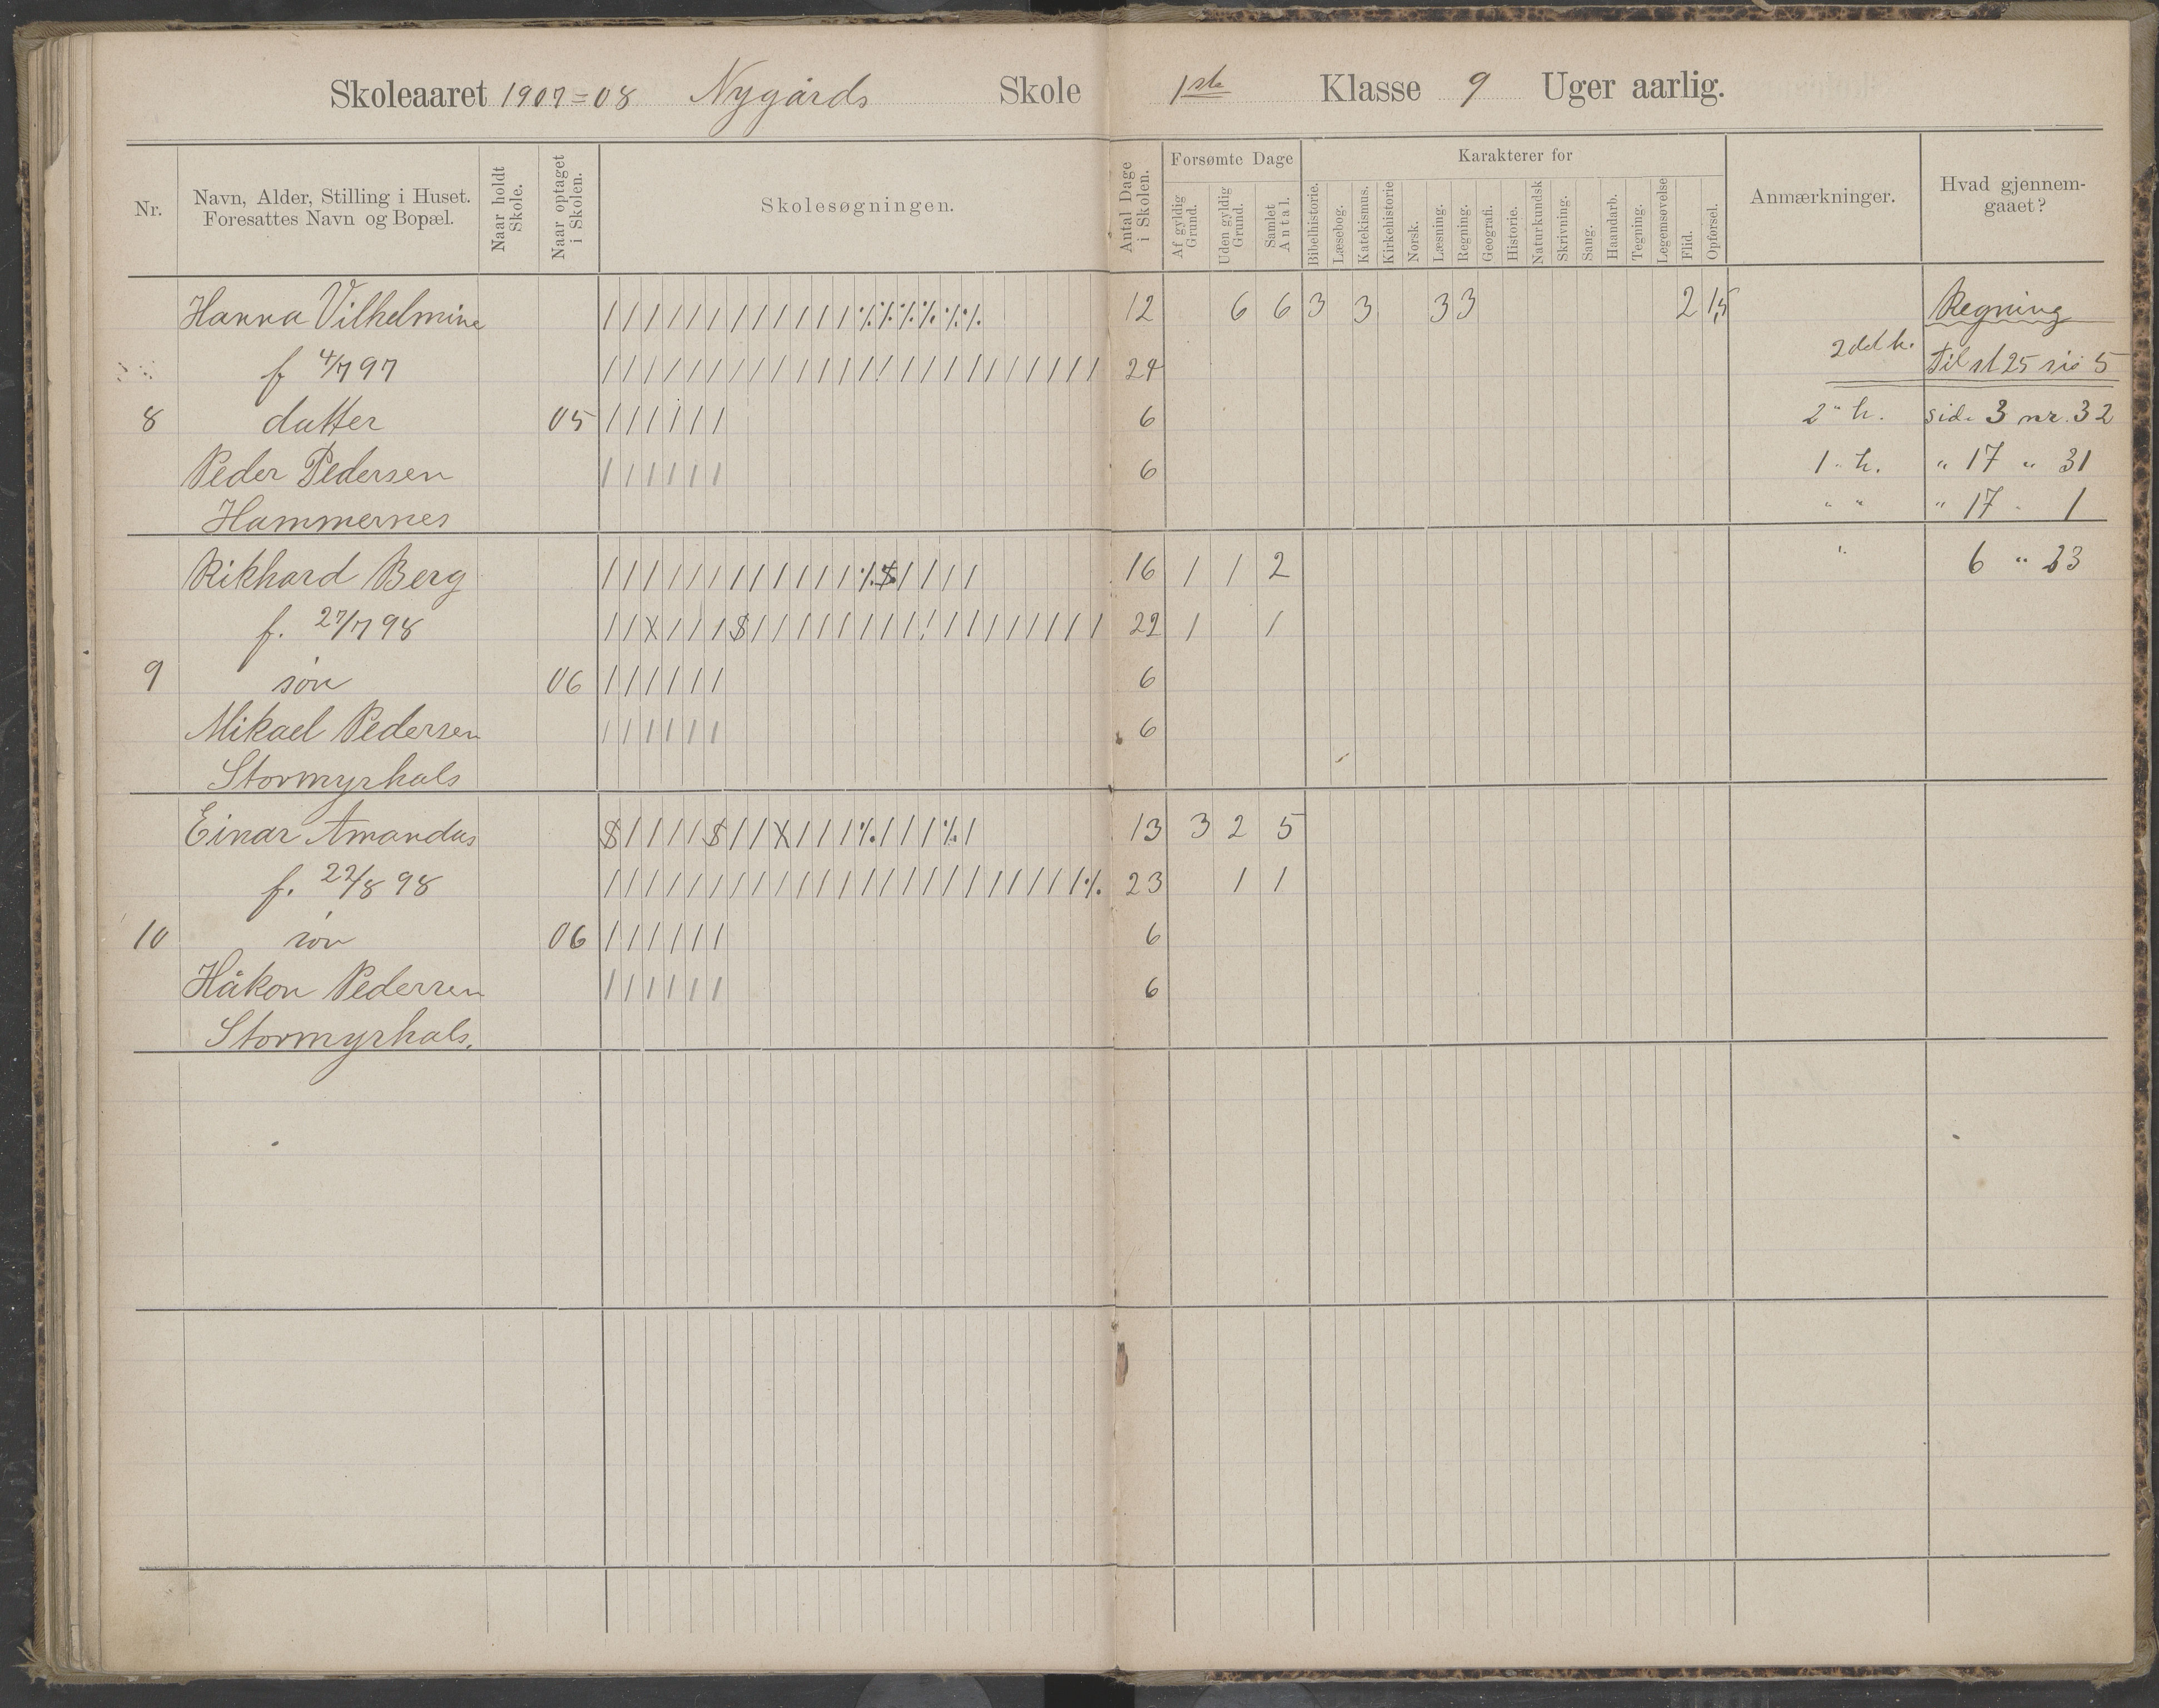 Skoleaaret 1907=08 Nygårds Skole 1ste Klasse 9 Uger aarlig.
Nr.
Navn, Alder, Stilling i Huset.
Foresattes Navn og Bopæl.
Naar holdt
Skole.
Naar optaget
i Skolen.
Skolesøgningen.
Antal Dage
i Skolen.
Forsømte Dage
Af gyldig
Grund.
Uden gyldig
Grund.
Samlet
Antal.
Karakterer for
Bibelhistorie.
Læsebog.
Katekismus.
Kirkehistorie
Norsk.
Læsning.
Regning.
Geografi.
Historie.
Naturkundsk
Skrivning.
Sang.
Haandarb.
Tegning.
Legemsøvelse
Flid.
Opførsel.
Anmærkninger.
Hvad gjennem-
gaaet?
Hanna Vilhelmine 12 6 6 3 3 3 3 2 1,5 Regning
f 4/7 97 24 2del h. til st 25 si 5
8 datter 05 6 2" h. side 3 nr. 32
Peder Pedersen 6 1 " h. " 17 " 31
Hammernes " " " 17 " 1
Rikhard Berg 16 1 1 2 " 6 " 23
f. 27/7 98 22 1 1
9 søn 06 6
Mikael Pedersen 6
Stormyrhals
Einar Amandus 13 3 2 5
f. 22/8 98 23 1 1
10 søn 06 6
Håkon Pedersen 6
Stormyrhals.